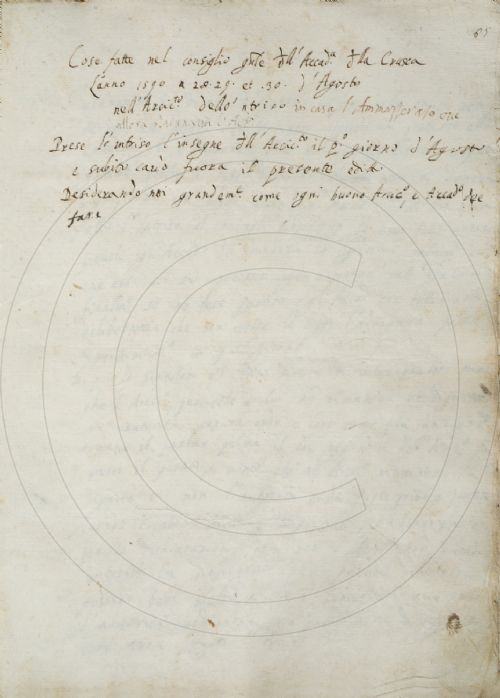 65
Cose fatte nel consiglio gnle dll' Accad.a dlla Crusca
L'anno 1590 a 28. 29. et .30. d'Agosto
nell'Arcic.to dello 'ntriso in casa l'Ammassicciato ove
allora l'Acc.a
Prese lo 'ntriso l'insegne dll' Arcic.to il p.o giorno d'Agosto
e subito cavò fuora il presente editto
Desiderando noi grandem.te come ogni buono Arcic.o e Accad.o dee
fare
C